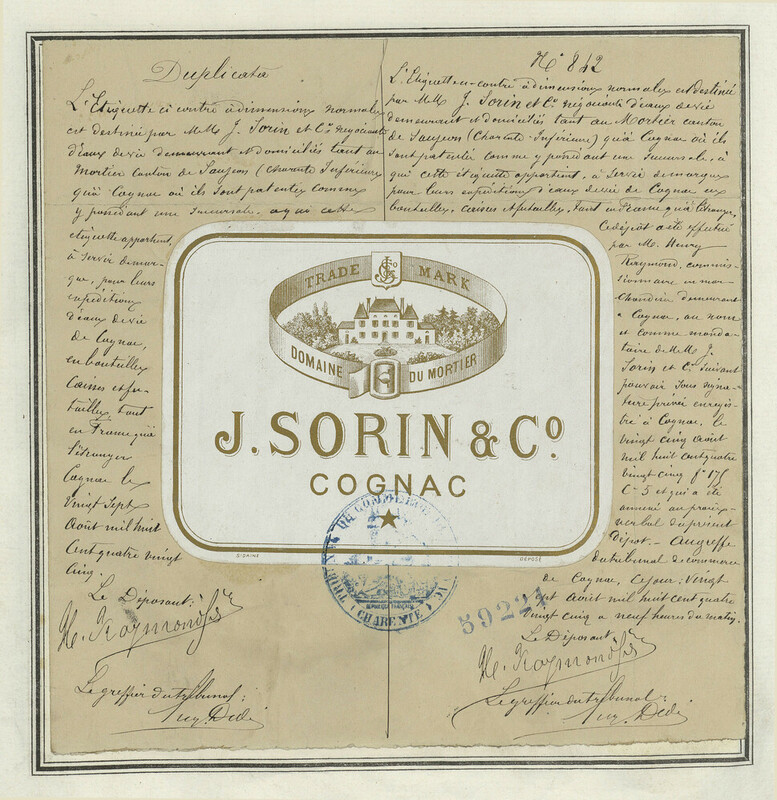 Duplicata
L'Etiquette ci contre à dimensions normales
est destinée par MM. J. Sorin et Cº negociants
d'eaux de vie demeurant & domiciliés tant au
Mortier canton de Saujeon (Charente Inférieure
qu'à Cognac où ils sont patentés comme
y possédant une Succursale, à qui cette
etiquette appartient,
à servir de mar-
que, pour leurs
expéditions
d'eaux de vie
de Cognac,
en bouteilles
Caisses et fu-
tailles, tant
en France qu'à
l'étranger
Cognac le
Vingt Sept
Août mil huit
Cent quatre vingt
cinq.
Le Déposant:
H. Raymond
Le greffier du tribunal:
Dedé
Nº 842
L'Etiquette en-contre à dimensions normales est destinée
par MM. J. Sorin et Cº négociants d'eaux de vie
demeurant & domiciliés tant au Mortier canton
de Saujeon (Charente-Inférieure) qu'à Cognac où ils
sont patentés comme y possédant une Succursale, à
qui cette étiquette appartient, à servir de marque
pour leurs expéditions d'eaux de vie de Cognac en
bouteilles, caisses & futailles, tant en France qu'à l'étranger,
Ce dépôt a été effectué
par M. Henry
Raymond, commis-
sionnaire en mar-
chandises demeurant
à Cognac, au nom
et comme manda-
taire de MM. J.
Sorin et Cº suivant
pouvoir sous signa-
ture privée enregis-
tré à Cognac, le
vingt cinq août
mil huit cent quatre
vingt cinq fº 175
Cº 5 et qui a été
annexé au procès-
verbal du présent
dépôt. - Au greffe
du tribunal de commerce
de Cognac, ce jour: vingt
sept août mil huit cent quatre
vingt cinq à neuf heures du matin.
Le Déposant
H. Raymond
Le greffier du tribunal:
Dedé
TRADE MARK
DOMAINE DU MORTIER
J. SORIN & Cº.
COGNAC
DEPOSÉ
TRIBUNAL DE COMMERCE DE COGNAC
REPUBLIQUE FRANÇAISE
(CHARENTE)
59221